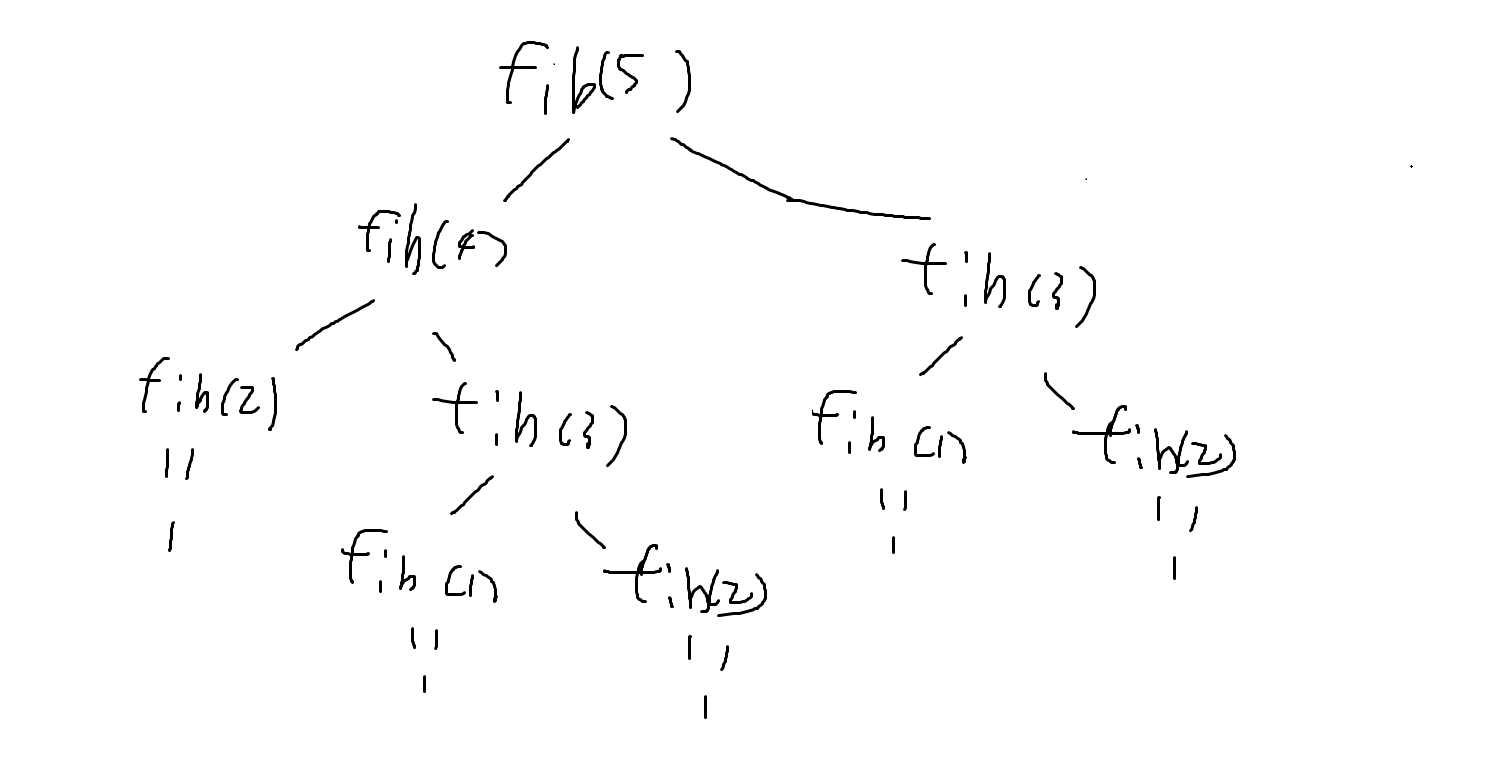 fib(5)
fib(4) fib(3)
fib(2) fib(3) fib(1) fib(2)
" " "
1 fib(1) fib(2) 1 1
" "
1 1